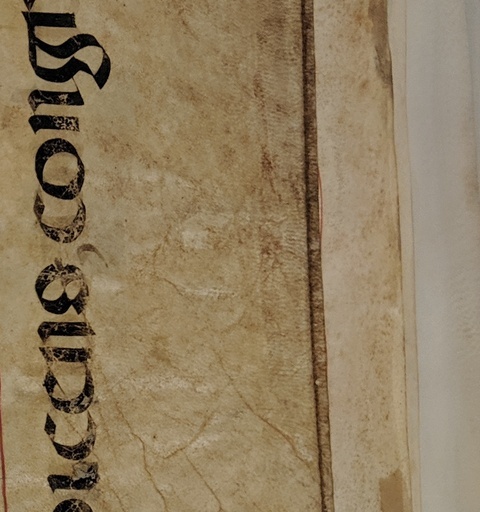 dicens, congr